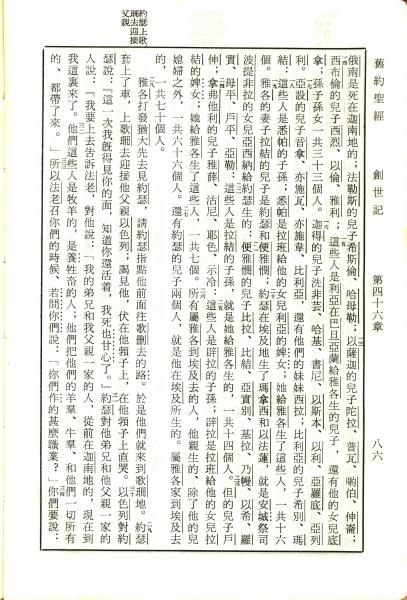 舊約聖經　創世記　第四十六章　八六
俄南是死在迦南地的,法勒斯的兒子希斯倫、哈母勒;以薩迦的兒子陀拉、普瓦、喲伯、伸崙;
西布倫的兒子西烈、以倫、雅利;這些人是利亞在巴旦亞蘭給雅各生的兒子,還有他的女兒底
拿,孫子孫女一共三十三個人。迦得的兒子洗非芸、哈基、書尼、以斯本、以利、亞羅底、亞列
利。亞設的兒子音拿、亦施瓦、亦施韋、比利亞、還有他們的妹妹西拉;比利亞的兒子希別、瑪
結:這些人是悉帕的子孫;悉帕是拉班給他的女兒利亞的婢女;她給雅各生了這些人,一共十六
個。雅各的妻子拉結的兒子是約瑟和便雅憫;約瑟在埃及地生了瑪拿西和以法蓮,就是安城祭司
波提非拉的女兒亞西納給約瑟生的;便雅憫的兒子比拉、比結、亞實別、基拉、乃幔、以希、羅
實、母平、戶平、亞勒:這些人是拉結的子孫,就是她給雅各生的,一共十四個人。但的兒子戶
伸;拿弗他利的兒子雅薛、沽尼、耶色、示冷:這些人是辟拉的子孫;辟拉是拉班給他的女兒拉
結的婢女;她給雅各生了這些人,一共七個。所有屬雅各到埃及去的人,他親生的,除了他的兒
媳婦之外,一共六十六個人。還有約瑟的兒子兩個人,就是他在埃及所生的。屬雅各家到埃及去
的,一共七十個人。
約瑟上歌
珊去迎接
父親
雅各打發猶大先去見約瑟,請約瑟指點他前面往歌珊去的路。於是他們就來到歌珊地。約瑟
套上了車,上歌珊去迎接他父親以色列;謁見他,伏在他頸子上,在他頸子上直哭。以色列對約
瑟說:『這一次我既得見你的面,知道你還活着,我死也甘心了。』約瑟對他弟兄和他父親一家的
人說:『我要上去告訴法老,對他說:「我的弟兄和我父親一家的人,從前在迦南地的,現在到
我這裏來了。他們這些人是牧羊的,是養牲畜的人;他們把他們的羊羣、牛羣、和他們一切所有
的、都帶了來。」所以法老召你們的時候、若問你們說:「你們作的甚麼職業?」你們要說: